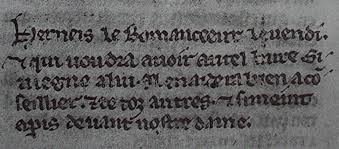 Herneis le Romanceeur le vendi.
& qui voudra avoir autel livre si
viegne a lui. il en aidera bien a co
seillier. & de toz autres. & si meint
a paris devant nostre dame.